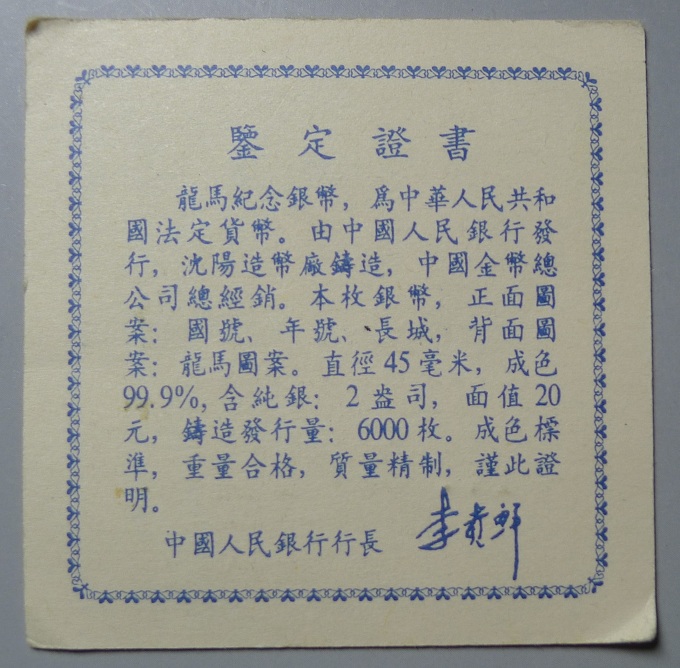 鑒定證書
龍馬紀念銀幣，爲中華人民共和
國法定貨幣。由中國人民銀行發
行，沈陽造幣廠鑄造，中國金幣總
公司總經銷。本枚銀幣，正面圖
案：國號、年號、長城，背面圖
案：龍馬圖案。直徑45毫米，成色
99.9%，含純銀：2盎司，面值20
元，鑄造發行量：6000枚。成色標
準，重量合格，質量精制，謹此證
明。
中國人民銀行行長 李貴鮮